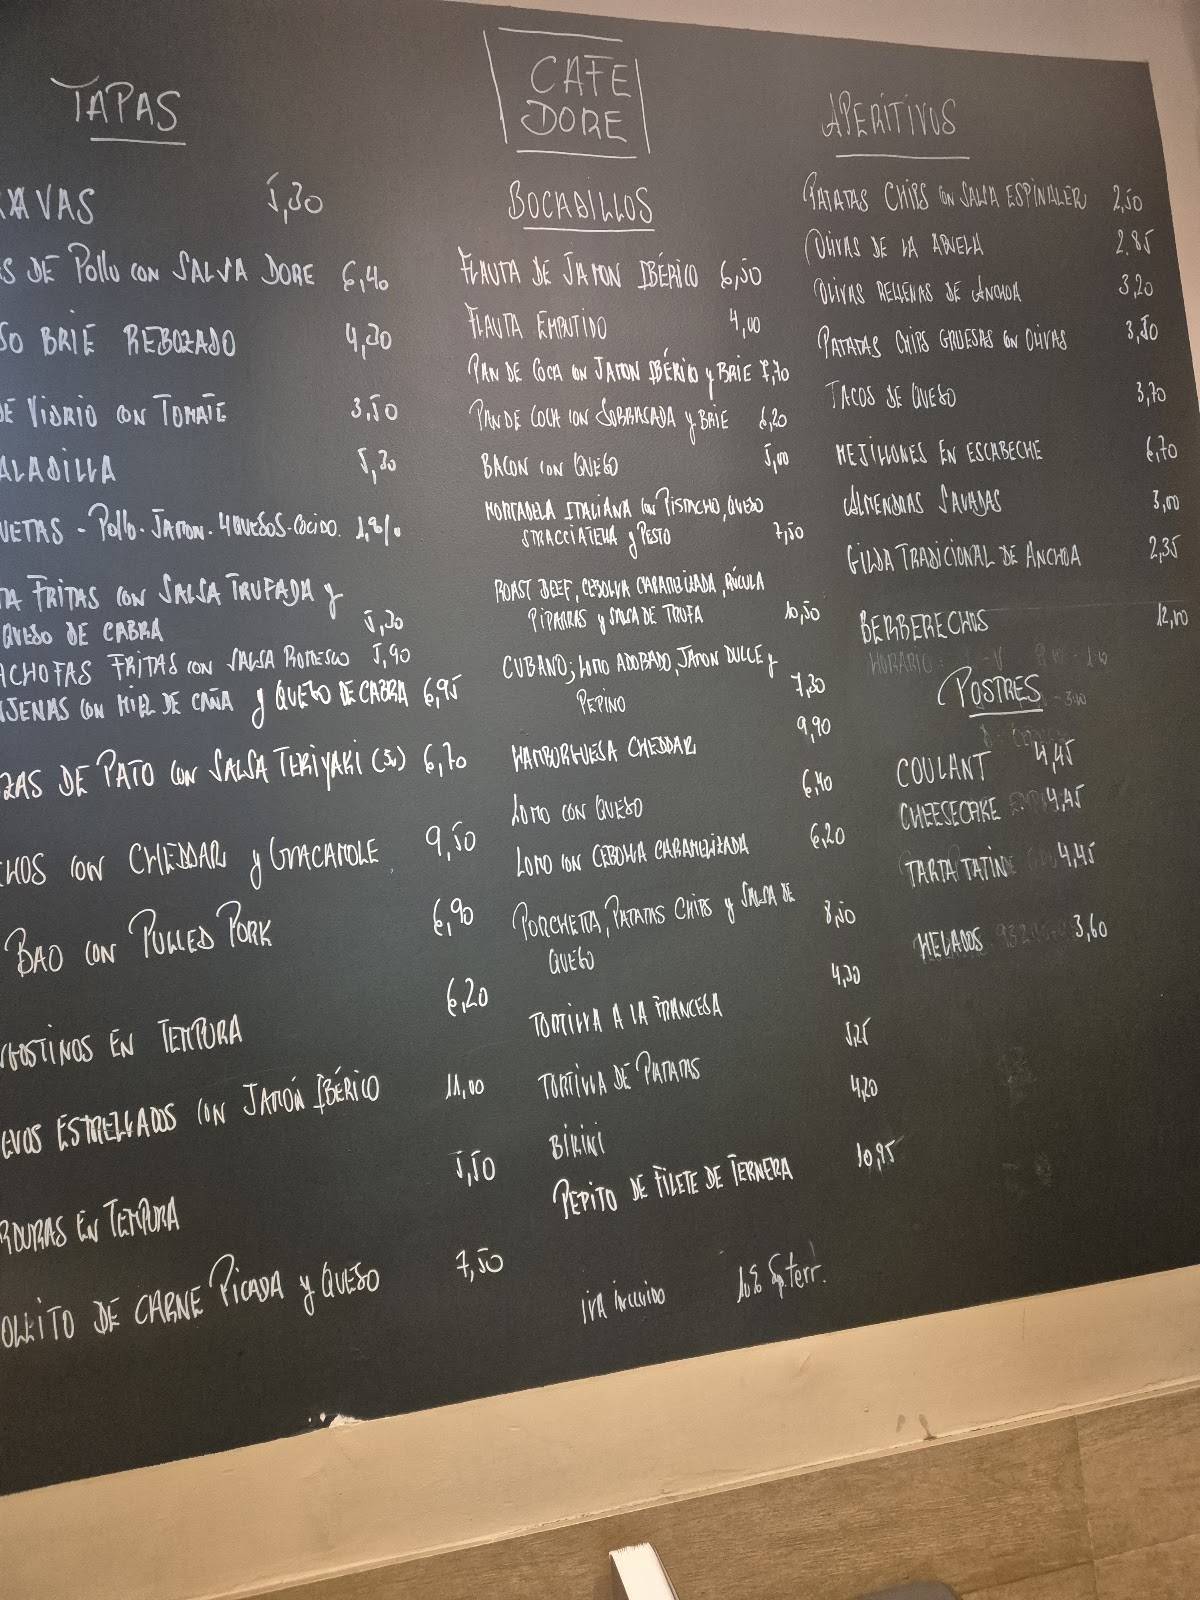 TAPAS
AVAS 5,30
S DE POLLO CON SALSA DORE 6,40
SO BRIE REBOZADO 4,30
DE VIDRIO CON TOMATE 3,50
ALADILLA 5,30
UETAS - POLLO - JAMON - 4QUESOS - COCIDO.
TA FRITAS CON SALSA TRUFADA y
QUESO DE CABRA 5,30
ACHOFAS FRITAS CON SALSA ROMESCO 5,90
NJENAS CON MIEL DE CAÑA y QUESO DE CABRA 6,95
ZAS DE PATO CON SALSA TERIYAKI 6,70
CHOS CON CHEDDAR y GUACAMOLE 9,50
BAO CON PULLED PORK 6,90
NGOSTINOS EN TEMPURA 6,20
EVOS ESTRELLADOS CON JAMÓN IBÉRICO 11,00
RDURAS EN TEMPURA 5,50
OLLITO DE CARNE PICADA y QUESO 7,50
CAFE
DORE
BOCADILLOS
FLAUTA DE JAMON IBÉRICO 6,50
FLAUTA EMBUTIDO 4,00
PAN DE COCA CON JAMON IBÉRICO y BRIE 7,70
PAN DE COCA CON SOBRASADA y BRIE 6,20
BACON CON QUESO 5,00
MORTADELA ITALIANA CON PISTACHO, QUESO
STRACCIATELLA y PESTO 7,50
ROAST BEEF, CEBOLLA CARAMELIZADA, RÚCULA
PIPARRAS y SALSA DE TRUFA 10,50
CUBANO; LOMO ADOBADO, JAMON DULCE y
PEPINO 7,30
HAMBURGUESA CHEDDAR 9,90
LOMO CON QUESO 6,40
LOMO CON CEBOLLA CARAMELIZADA 6,20
PORCHETTA, PATATAS CHIPS y SALSA DE
QUESO 8,50
TORTILLA A LA FRANCESA 4,30
TORTILLA DE PATATAS 5,25
BIKINI 4,20
PEPITO DE FILETE DE TERNERA 10,95
IVA INCLUIDO 10%
APERITIVOS
PATATAS CHIPS CON SALSA ESPINALER 2,50
OLIVAS DE LA ABUELA 2.85
OLIVAS RELLENAS DE ANCHOA 3,20
PATATAS CHIPS GRUESAS CON OLIVAS 3,50
TACOS DE QUESO 3,70
MEJILLONES EN ESCABECHE 6,70
ALMENDRAS SALADAS 3,00
GILDA TRADICIONAL DE ANCHOA 2,35
BERBERECHOS 12,00
HORARIO:
POSTRES
COULANT 4,45
CHEESECAKE 4,45
TARTA TATIN 4,45
HELADOS 3,60